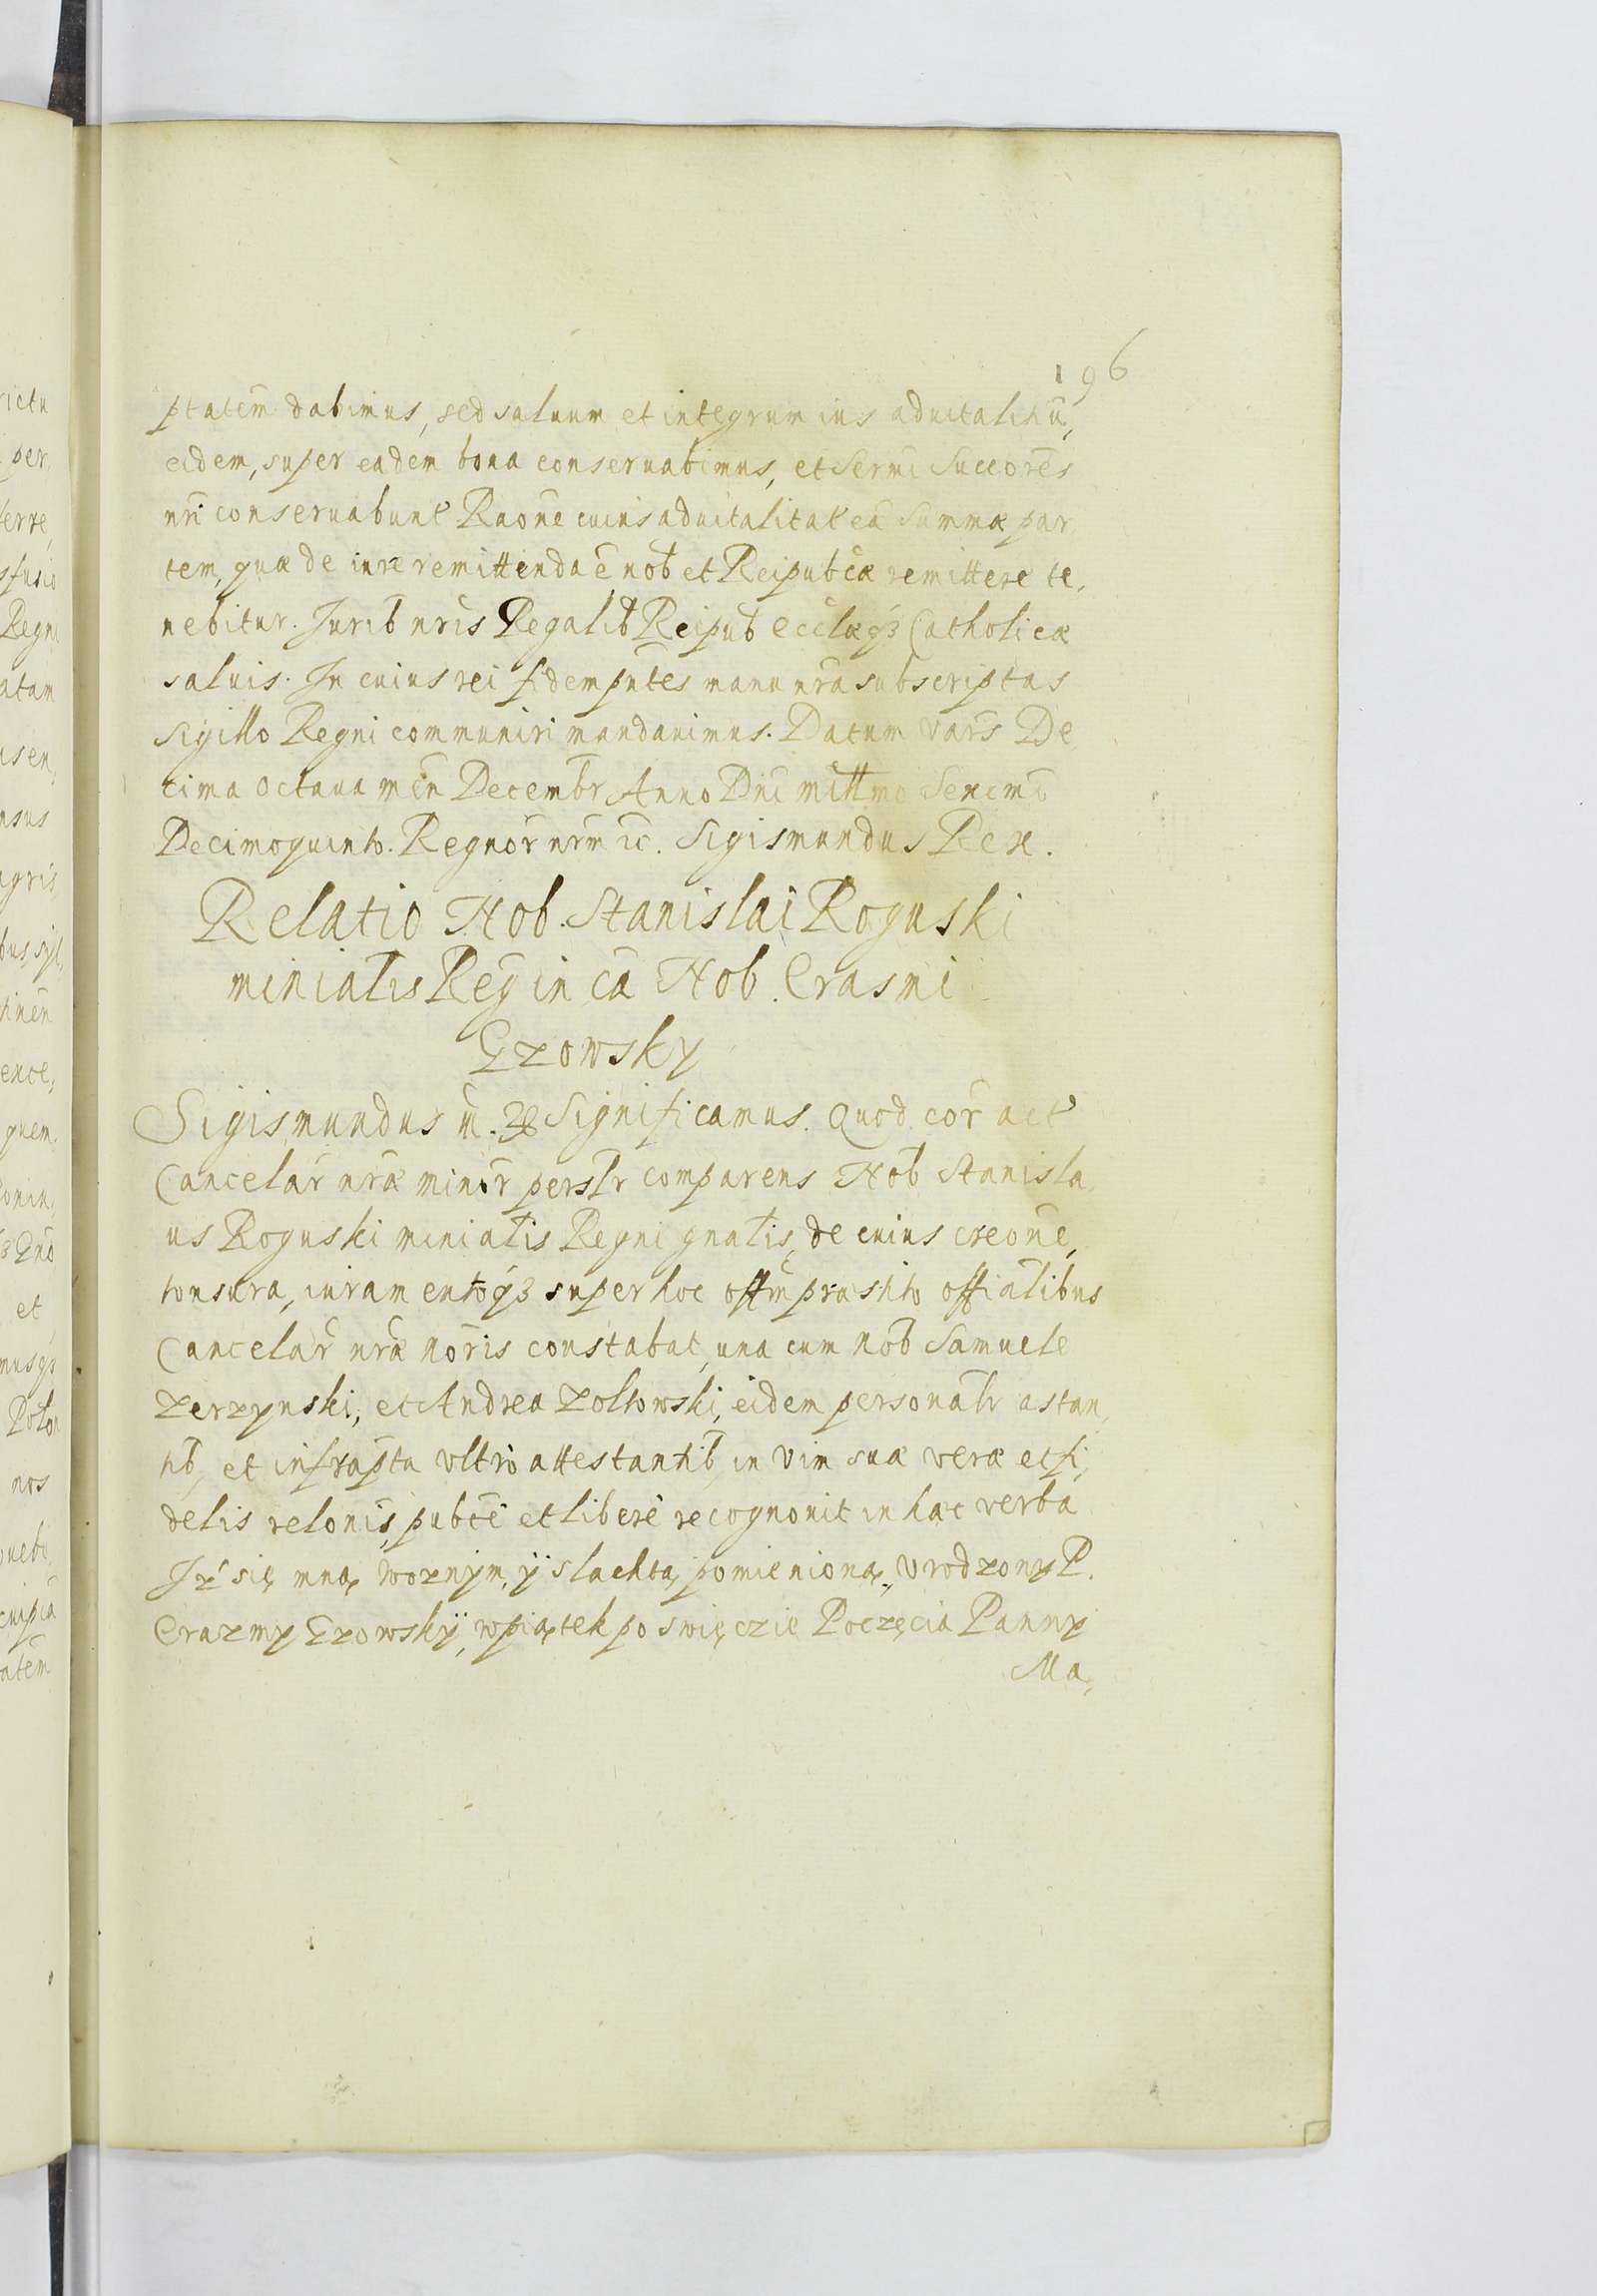 196
ptatem dabimus, sed saluum et integrum ius aduitalitiū,
eidem, super eadem bona conseruabimus, et Sermi Succorēs
nri conseruabunt Raōne cuius aduitalitat eā Summæ par
tem, quæ de iure remittenda ē nob et Reipubcæ remittere te,
nebitur. Jurib nris Regalib Reipub Ecclæqz Catholicæ
saluis. In cuius rei fidem pntes manu nra subscriptas
Sigillo Regni communiri mandauimus. Datum Vars De
cima Octaua men Decembr Anno Dni millmo Sexcmo
Decimoquinto. Regnor nrm ic. Sigismundus Rex.
Relatio Nob. Stanislai Roguski
minialis Reg in cā Nob. Erasmi
Gzowsky
Sigismundus III. Significamus. Quod cor act
Cancelar nræ minor perslr comparens Nob Stanisla
us Roguski minialis Regni gnalis, de cuius creone,
tonsura, iuramentoqz super hoc offm præstito offialibus
Cancelar nræ noris constabat, una cum Nob Samuele
Zerzynski, et Andrea Zoltowski, eidem personalr astan,
tib, et infrapta vltrò attestantib in vim suæ veræ et fi,
delis relonis, pubcè et liberè recognouit in hæc verba
Jż się mną woznym, ÿ slachtą pomienioną, Vrodzony P.
Erazmy Gzowskÿ, w piątek po swięczie Poczęcia Panny
Ma,